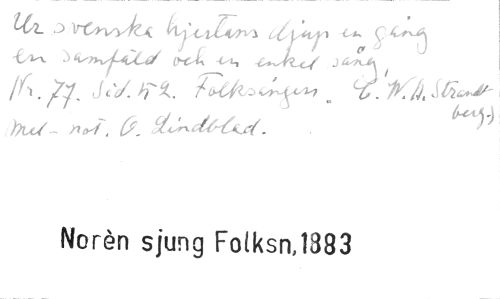 Ur svenska hjertans djup en gång
en samfäld och en enkel sång,
Nr. 77. Sid. 52. Folksången. C. W. A. Strand
berg.)
mel- not. O. Lindblad.
Norèn sjung Folksn, 1883